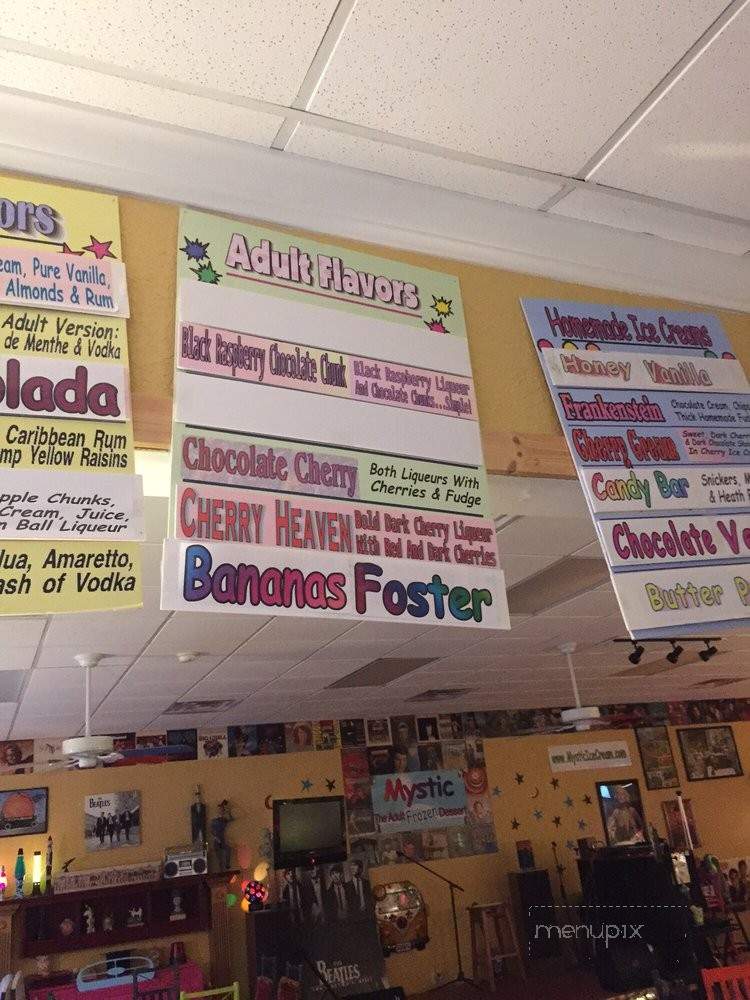 ors
eam, Pure Vanilla,
Almonds & Rum
Adult Version:
de Menthe & Vodka
olada
Caribbean Rum
mp Yellow Raisins
pple Chunks,
Cream, Juice,
n Ball Liqueur
lua, Amaretto,
ash of Vodka
Adult Flavors
Black Raspberry Chocolate Chunk
Black Raspberry Liqueur
And Chocolate Chunks...Simple!
Chocolate Cherry
Both Liqueurs With
Cherries & Fudge
CHERRY HEAVEN
Bold Dark Cherry Liqueur
With Red And Dark Cherries
Bananas Foster
Homemade Ice Creams
Honey Vanilla
Frankenstein
Chocolate Cream, Chips
Thick Homemade Fu
Cherry Cream
Sweet, Dark Cherr
& Dark Chocolate Sha
In Cherry Ice C
Candy Bar
Snickers, M
& Heath
Chocolate Va
Butter P
www.MysticIceCream.com
Mystic
The Adult Frozen Dessert
THE BEATLES
THE BEATLES
menupix